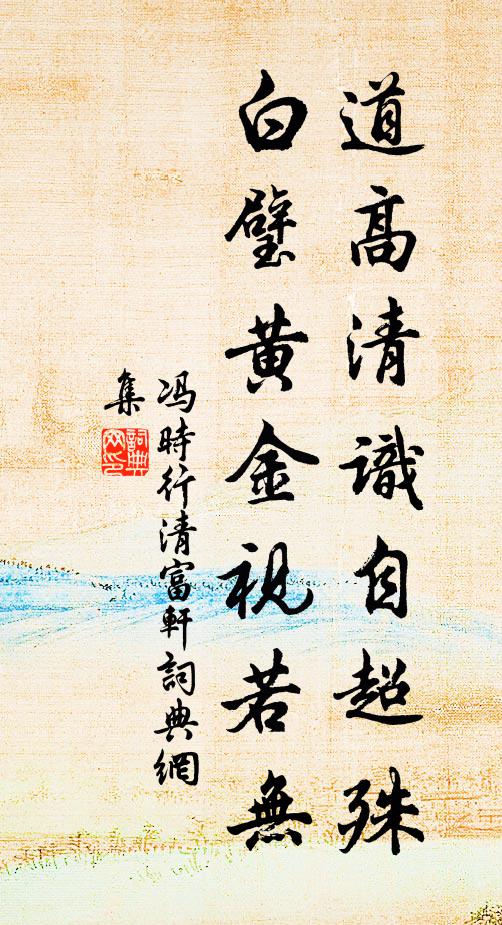 道高清識自超殊
白璧黄金視若無
冯時行清富軒詞典網
集
詞典
网印